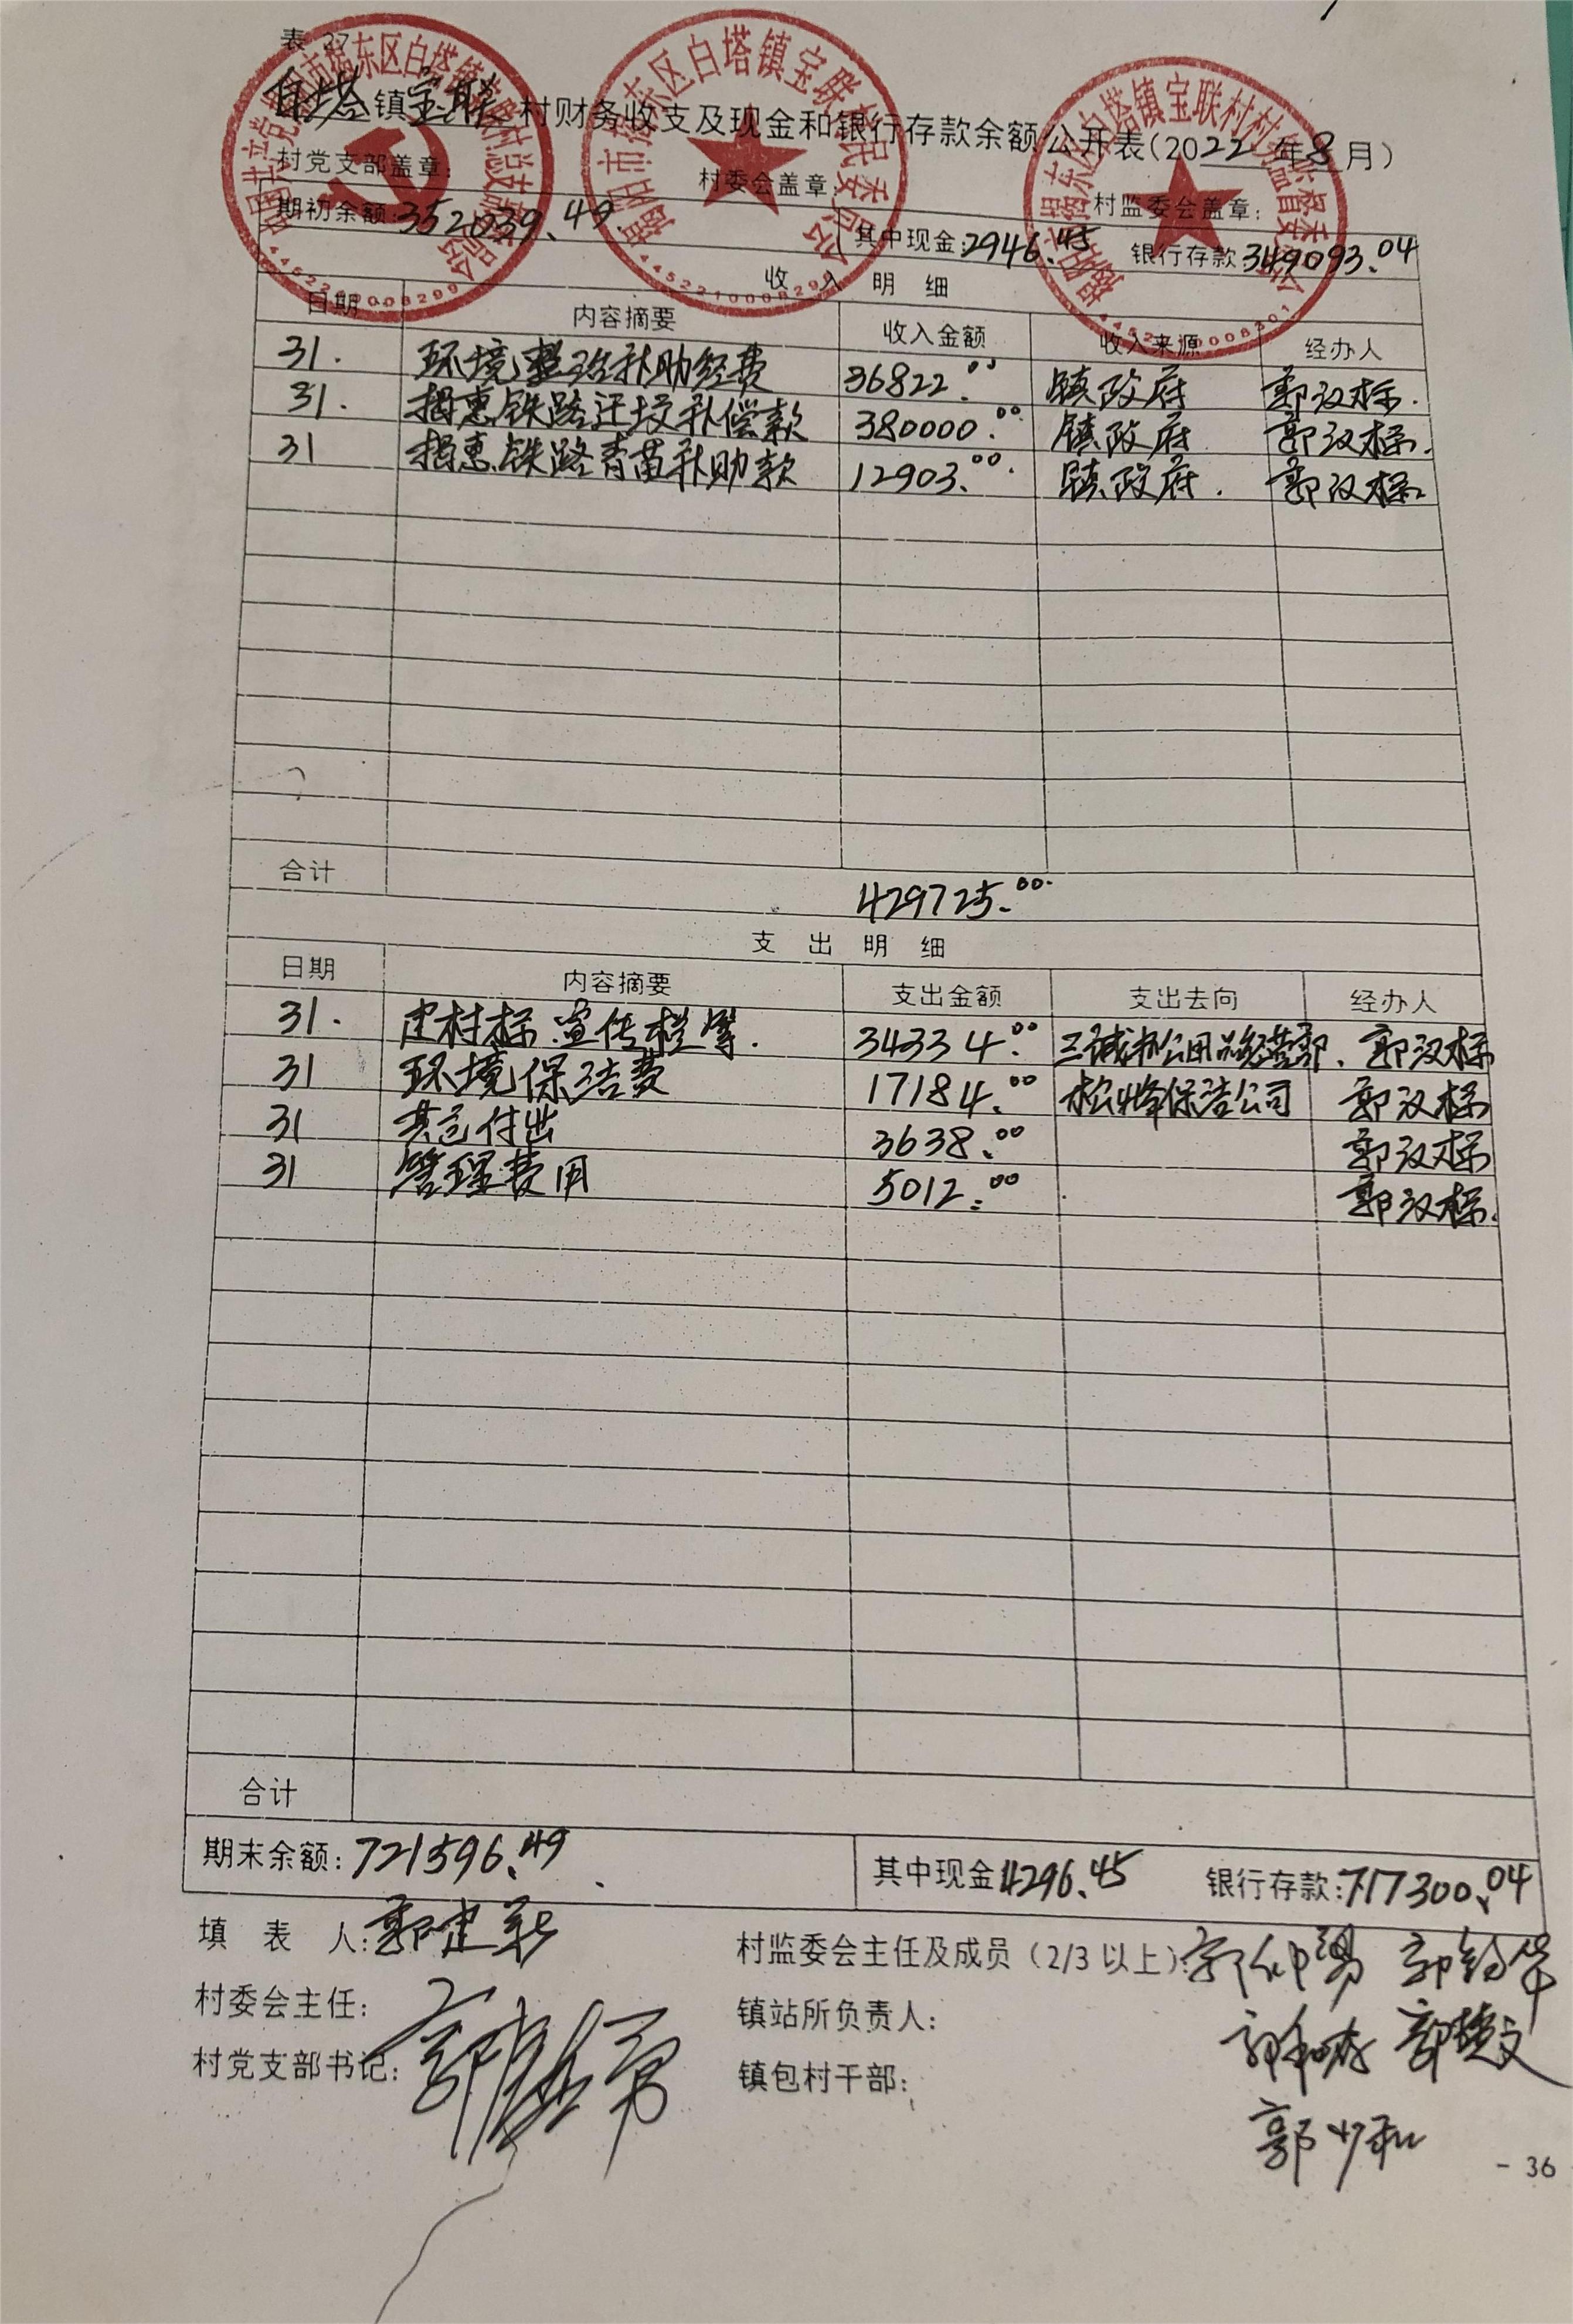 表 27
白塔镇宝联村财务收支及现金和银行存款余额公开表(2022年8月)
村党支部盖章: 村委会盖章: 村监委会盖章:
期初余额:352039.49 其中现金:2946.45 银行存款:349093.04
收入明细
日期 内容摘要 收入金额 收入来源 经办人
31. 环境整治补助经费 36822.00 镇政府 郭汉标.
31. 揭惠铁路迁坟补偿款 380000.00 镇政府 郭汉标.
31 揭惠铁路青苗补助款 12903.00. 镇政府. 郭汉标
合计 429725.00.
支出明细
日期 内容摘要 支出金额 支出去向 经办人
31. 建村标.宣传栏等. 34334.00 三诚办公用品经营部. 郭汉标
31 环境保洁费 17184.00 松峰保洁公司 郭汉标
31 其它付出 3638.00 郭汉标
31 管理费用 5012.00 郭汉标.
合计
期末余额:721596.49 其中现金4296.45 银行存款:717300.04
填表人:郭建
村监委会主任及成员(2/3以上):
村委会主任:
镇站所负责人:
村党支部书记:
镇包村干部:
郭少和
- 36